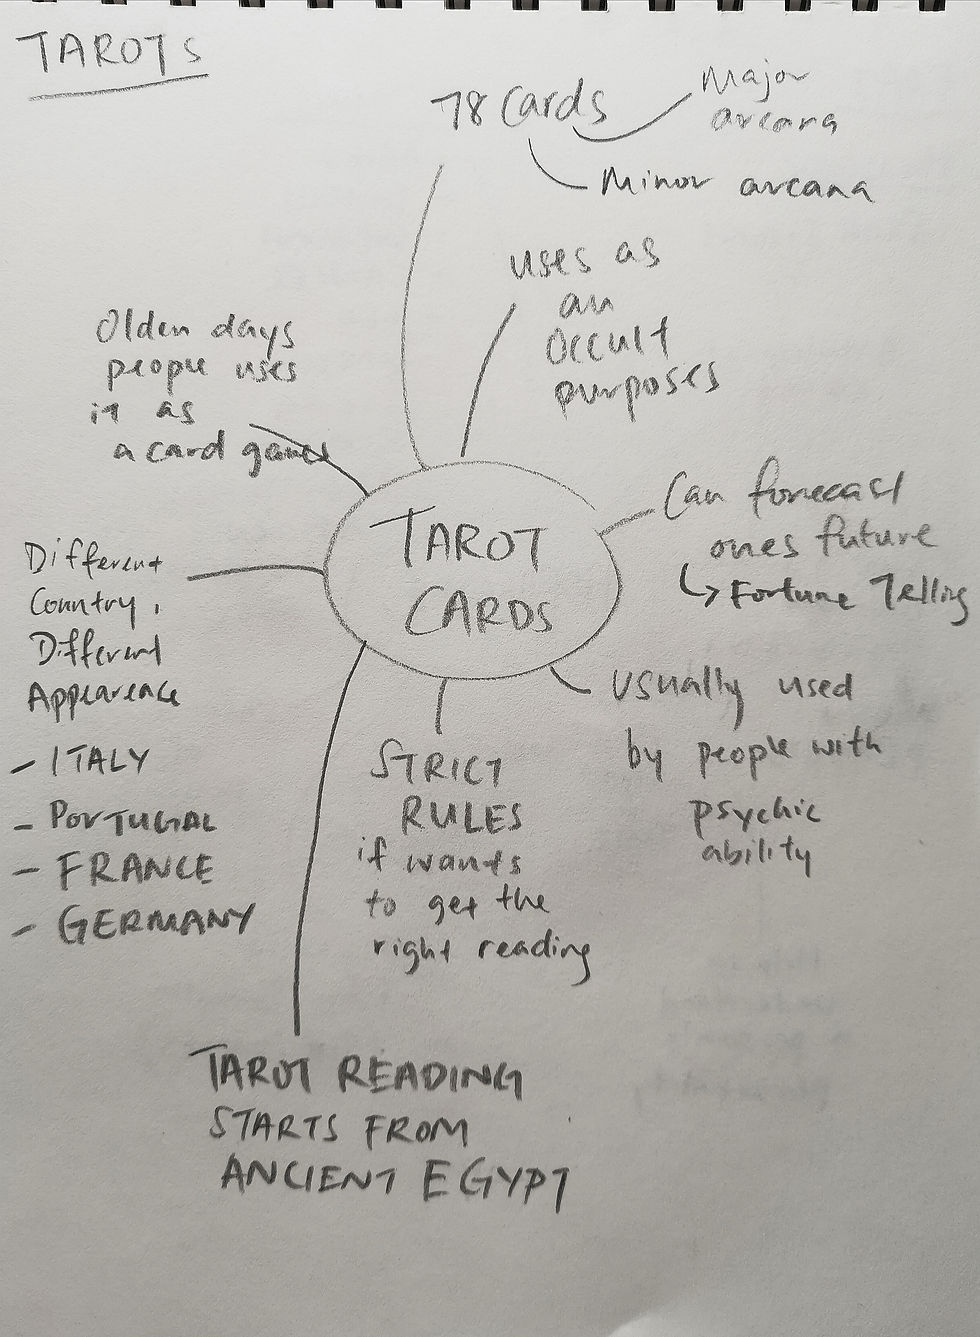 TAROTS
78 Cards
Major
arcana
Minor arcana
uses as
an
occult
purposes
Olden days
people uses
it as
a card games
TAROT
CARDS
Can forecast
ones future
↳ Fortune Telling
Different
Country,
Different
Appearence
- ITALY
- PORTUGAL
- FRANCE
- GERMANY
STRICT
RULES
if wants
to get the
right reading
usually used
by people with
psychic
ability
TAROT READING
STARTS FROM
ANCIENT EGYPT